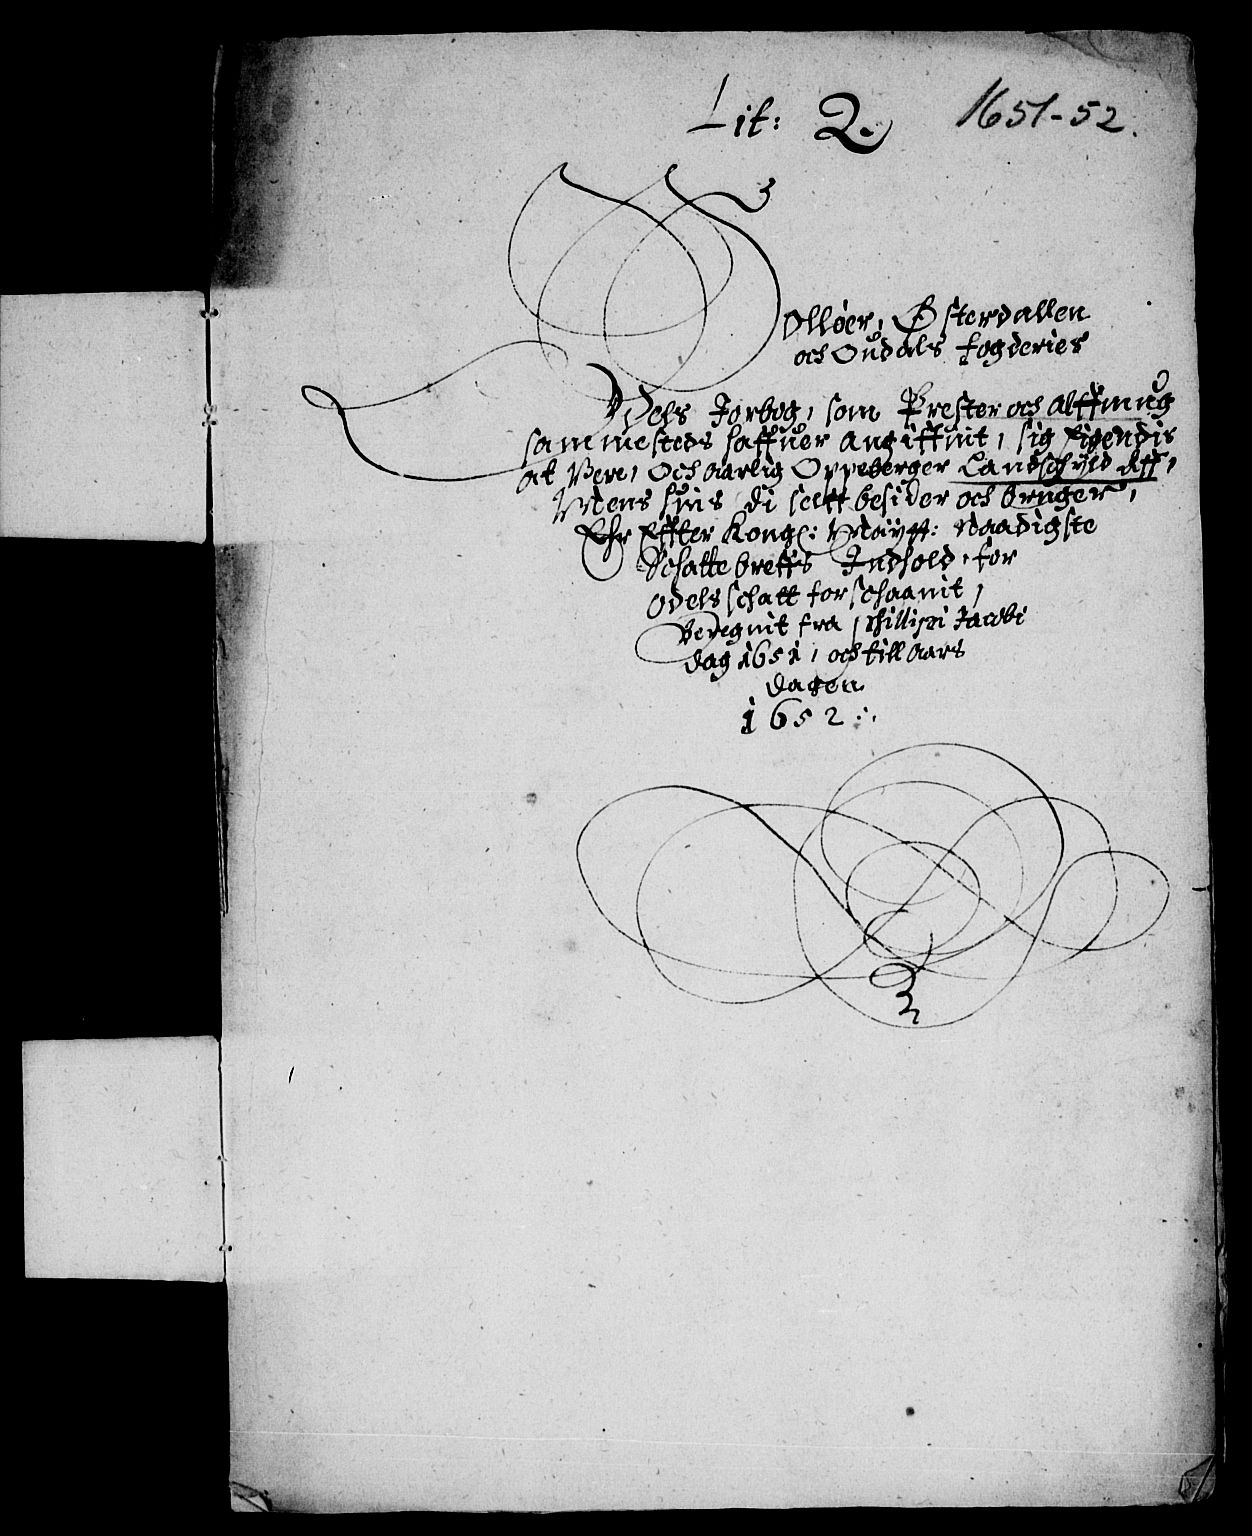 Lit: Q. 1651-52.
Solløer, Østerdallen
och Oudals fogderies
Odels Jorbog, som Prester och Alffmug
sammesteds haffuer angiffuit, sig Eigendis
at Vere, Och aarlig Oppeberger Landschyld aff,
Mens huis di selff besider och bruger,
Ehr Effter Kongl: Maÿtt: Naadigste
Schattebreffs Indhold, for
Odelsschatt forschaanit,
Beregnit fra Phillipi Jacobi
dag 1651, och till Aars
dagen
1652